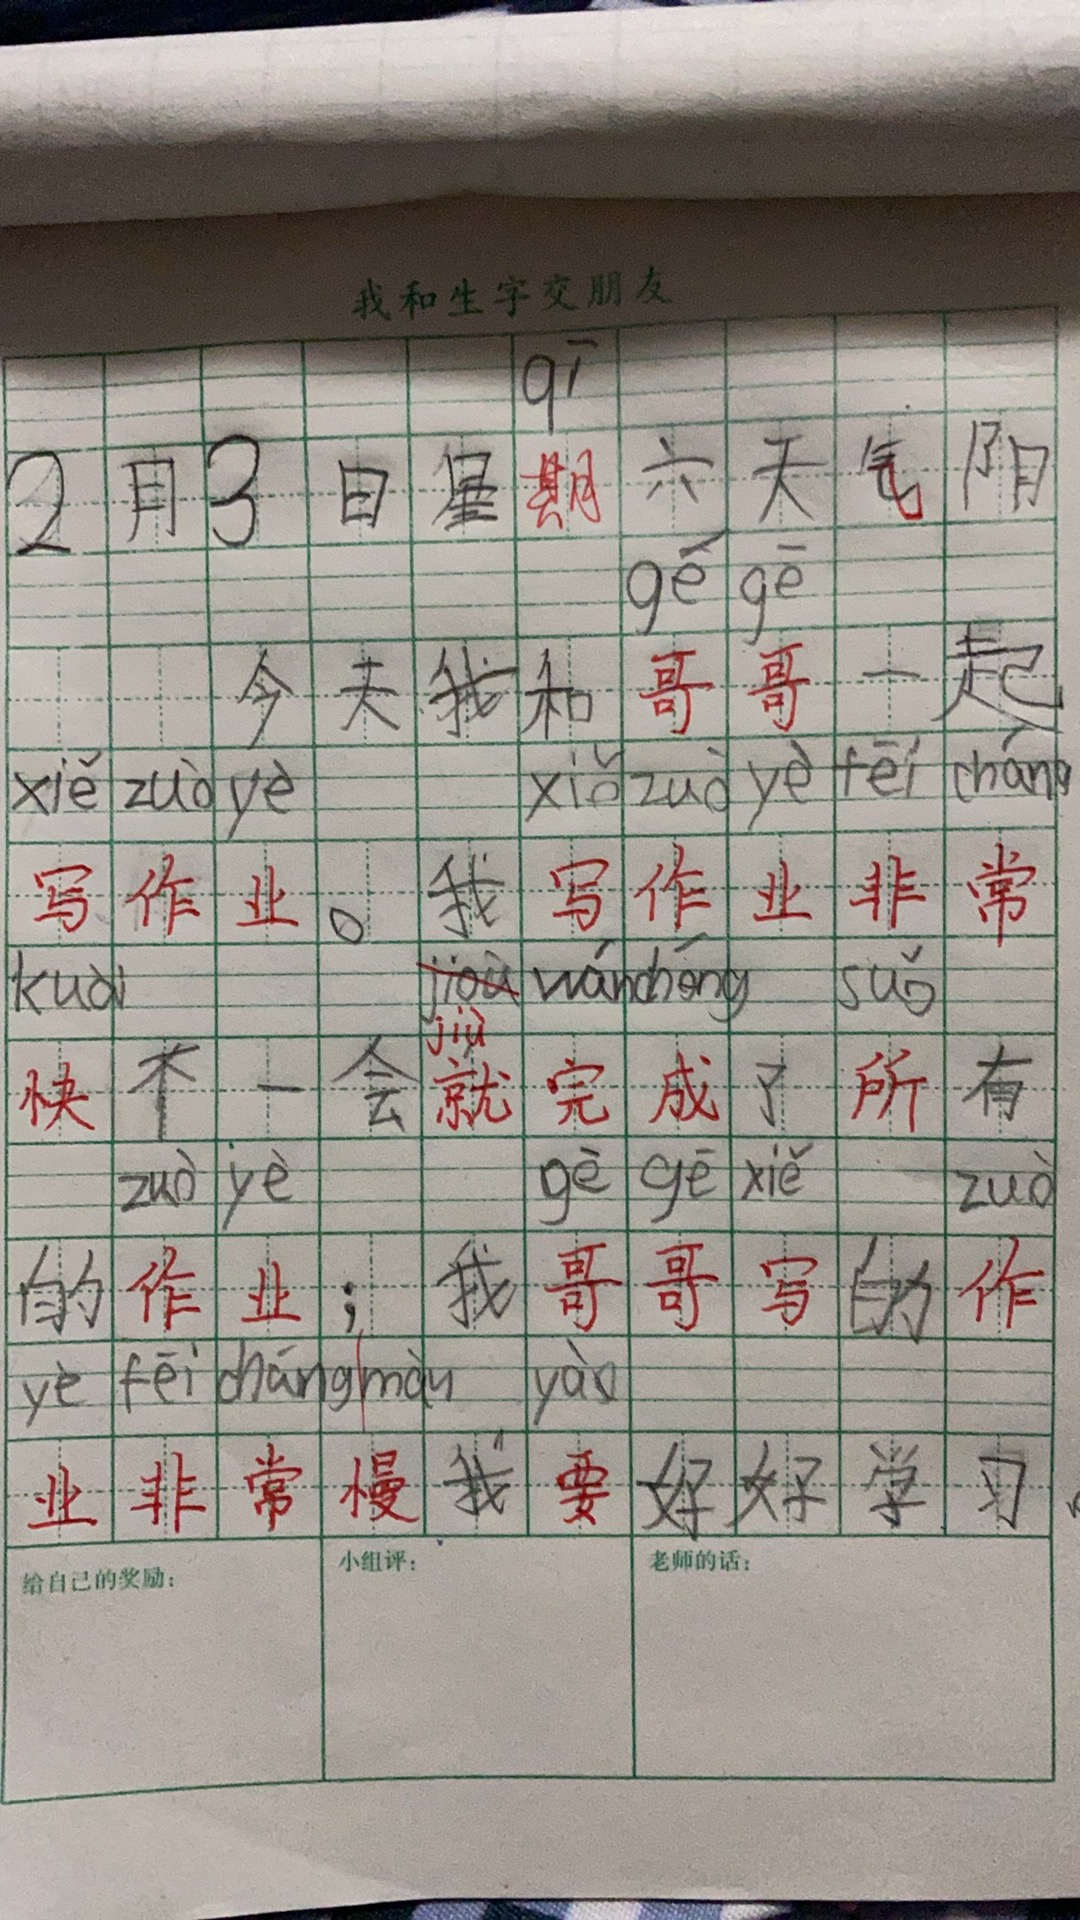 我和生字交朋友
qī
2月3日星期六天气阴
gé gē
今天我和哥哥一起
xiě zuò yè xiě zuò yè fēi cháng
写作业。我写作业非常
kuài jioù wánchéng suǒ
jiù
快不一会就完成了所有
zuò yè gē gē xiě zuò
的作业；我哥哥写的作
yè fēi cháng màn yào
业非常慢我要好好学习
给自己的奖励：
小组评：
老师的话：